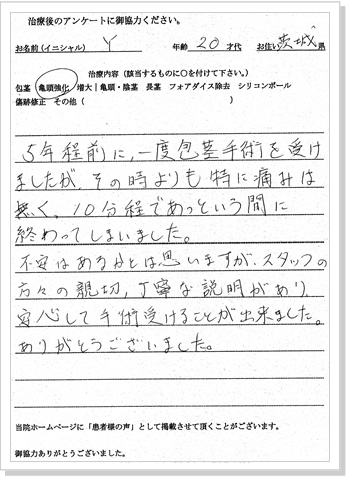 治療後のアンケートに御協力ください。
お名前(イニシャル) Y 年齢 20 才代 お住い 茨城 県
治療内容(該当するものに〇を付けて下さい。)
包茎 亀頭強化 増大|亀頭・陰茎 長茎 フォアダイス除去 シリコンボール
傷跡修正 その他( )
5年程前に、一度包茎手術を受け
ましたが、その時よりも特に痛みは
無く、10分程であっという間に
終わってしまいました。
不安はあるかとは思いますが、スタッフの
方々の親切、丁寧な説明があり、
安心して手術受けることが出来ました。
ありがとうございました。
当院ホームページに「患者様の声」として掲載させて頂くことがございます。
御協力ありがとうございました。